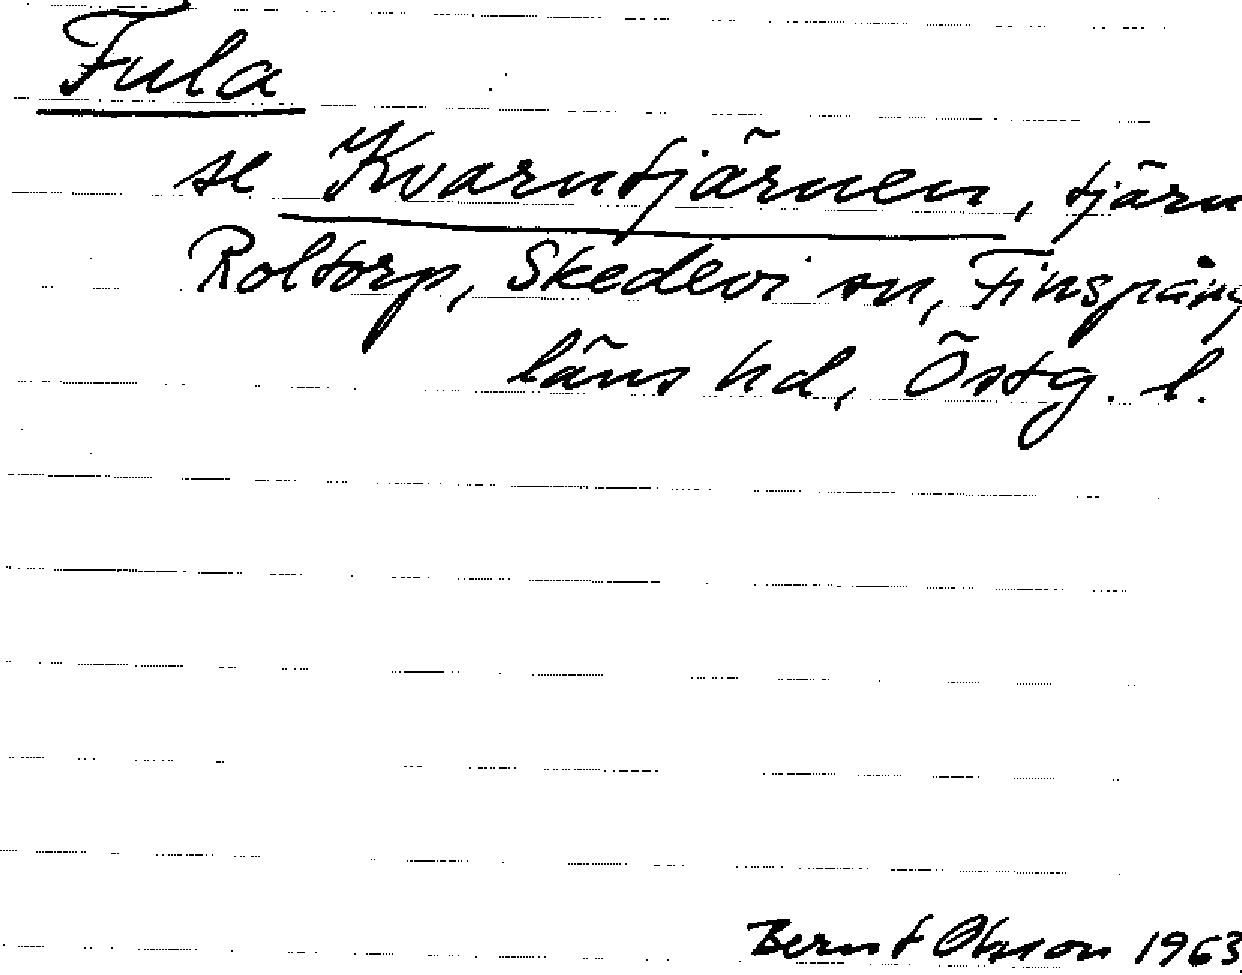 Fula
se Kvarntjärnen, tjärn
Roltorp, Skedevi sn, Finspång
läns hd, Östg. l.
Bernt Olsson 1963